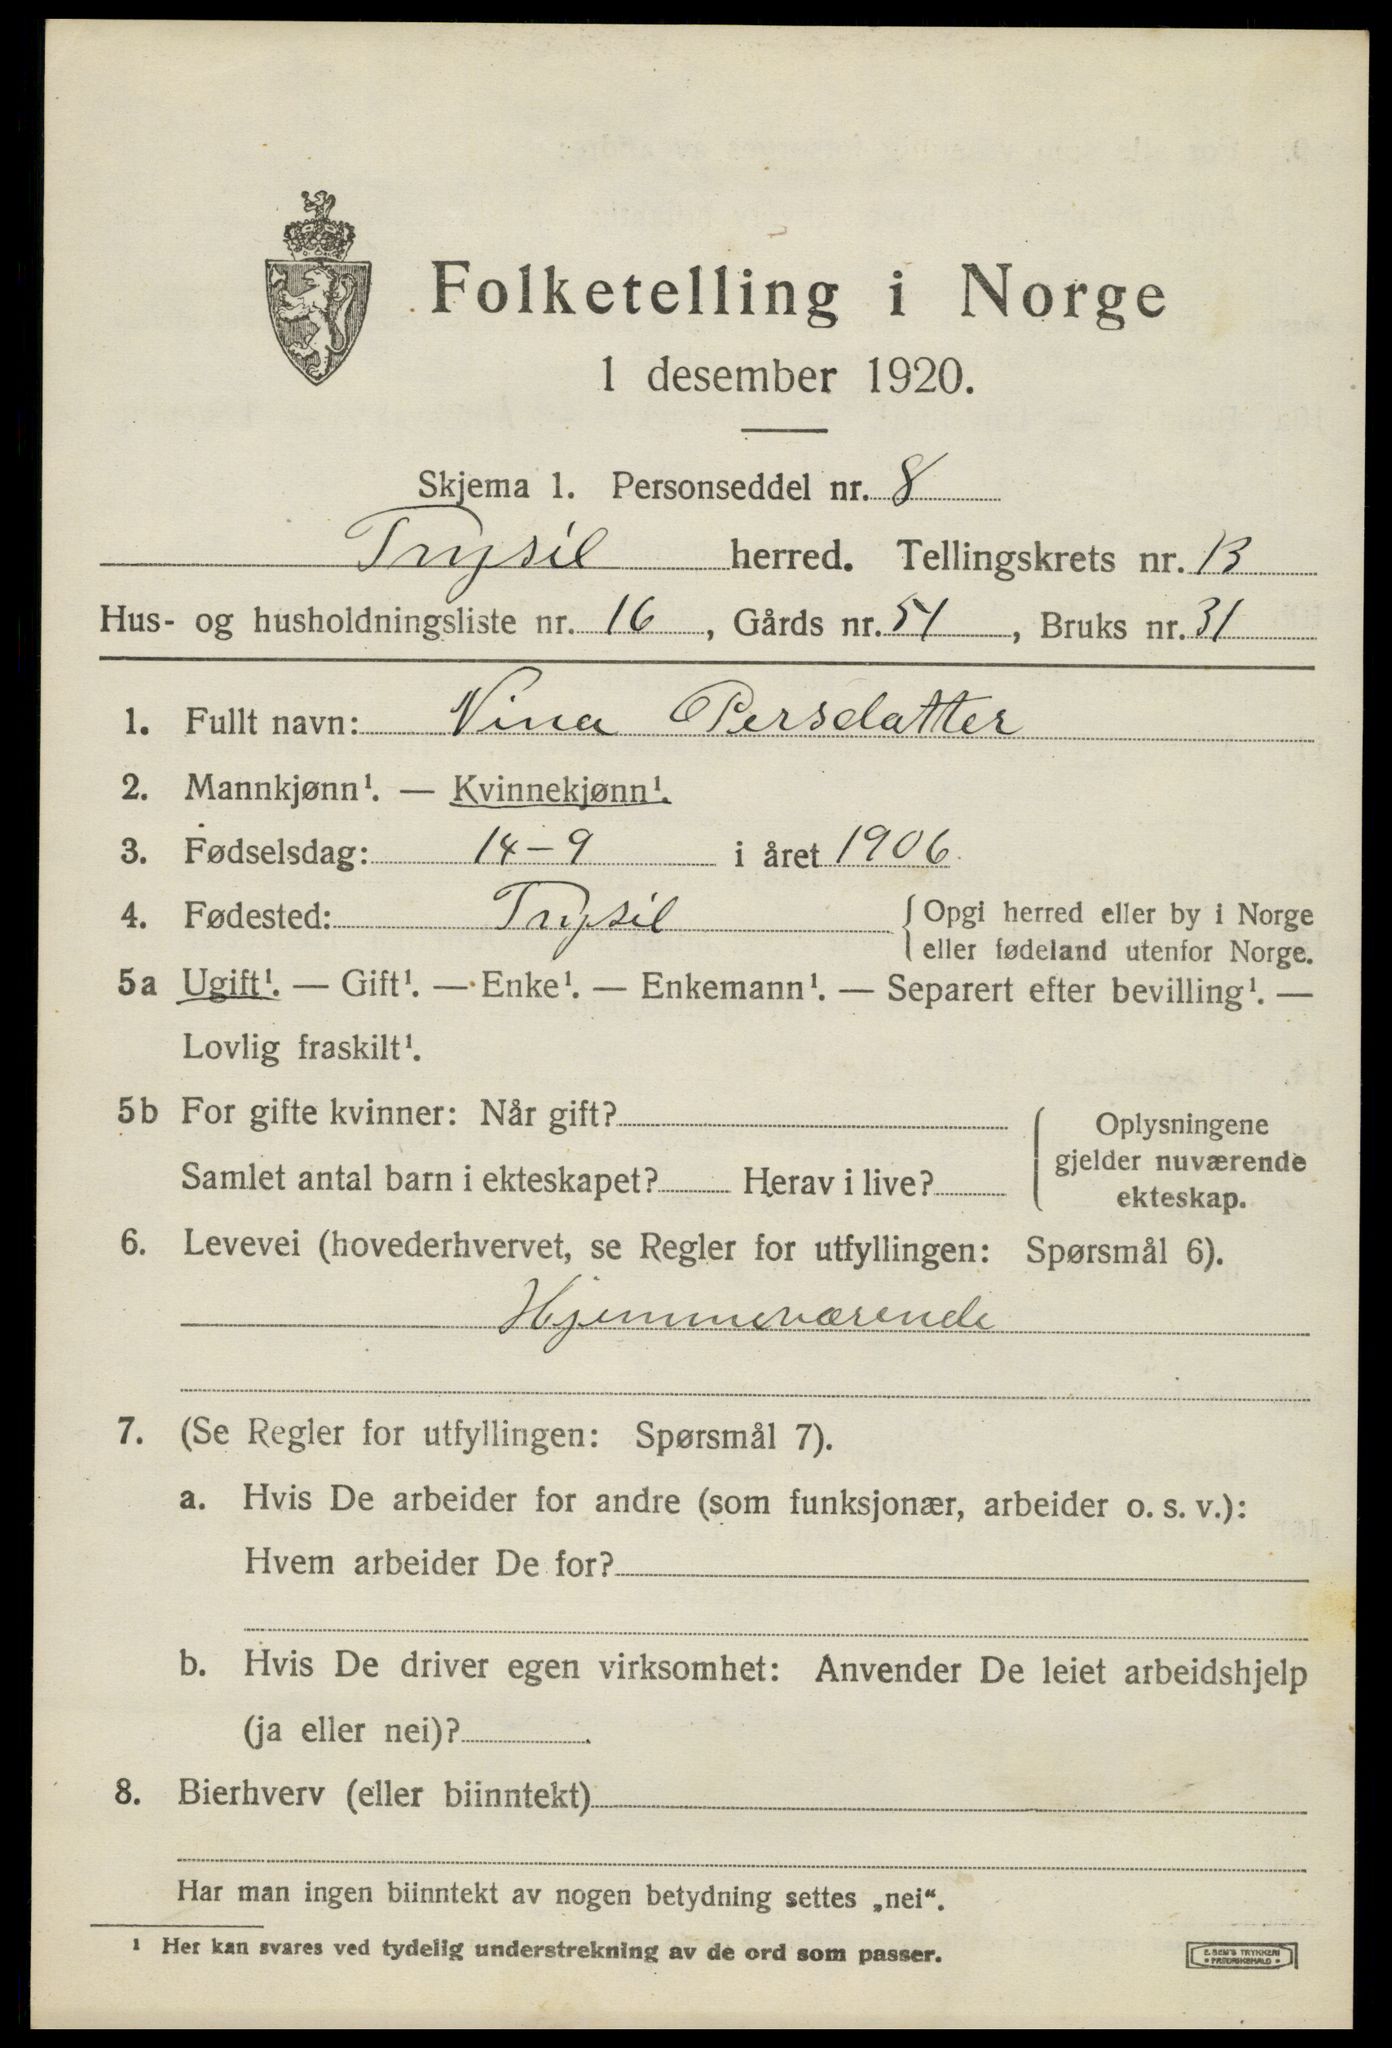 Folketelling i Norge
1 desember 1920.
Skjema 1. Personseddel nr. 8
Trysil herred. Tellingskrets nr. 13
Hus- og husholdningsliste nr. 16, Gårds nr. 54, Bruks nr. 31
1. Fullt navn: Nina Persdatter
2. Mannkjønn¹. — Kvinnekjønn¹.
3. Fødselsdag: 14-9 i året 1906
4. Fødested: Trysil { Opgi herred eller by i Norge
eller fødeland utenfor Norge.
5a Ugift¹. — Gift¹. — Enke¹. — Enkemann¹. — Separert efter bevilling¹. —
Lovlig fraskilt¹.
5b For gifte kvinner: Når gift?
Samlet antal barn i ekteskapet? Herav i live?
Oplysningene
gjelder nuværende
ekteskap.
6. Levevei (hovederhvervet, se Regler for utfyllingen: Spørsmål 6).
Hjemmeværende
7. (Se Regler for utfyllingen: Spørsmål 7).
a. Hvis De arbeider for andre (som funksjonær, arbeider o. s. v.):
Hvem arbeider De for?
b. Hvis De driver egen virksomhet: Anvender De leiet arbeidshjelp
(ja eller nei)?
8. Bierhverv (eller biinntekt)
Har man ingen biinntekt av nogen betydning settes „nei“.
¹ Her kan svares ved tydelig understrekning av de ord som passer.
E. SEM'S TRYKKERI
• FREDRIKSHALD •